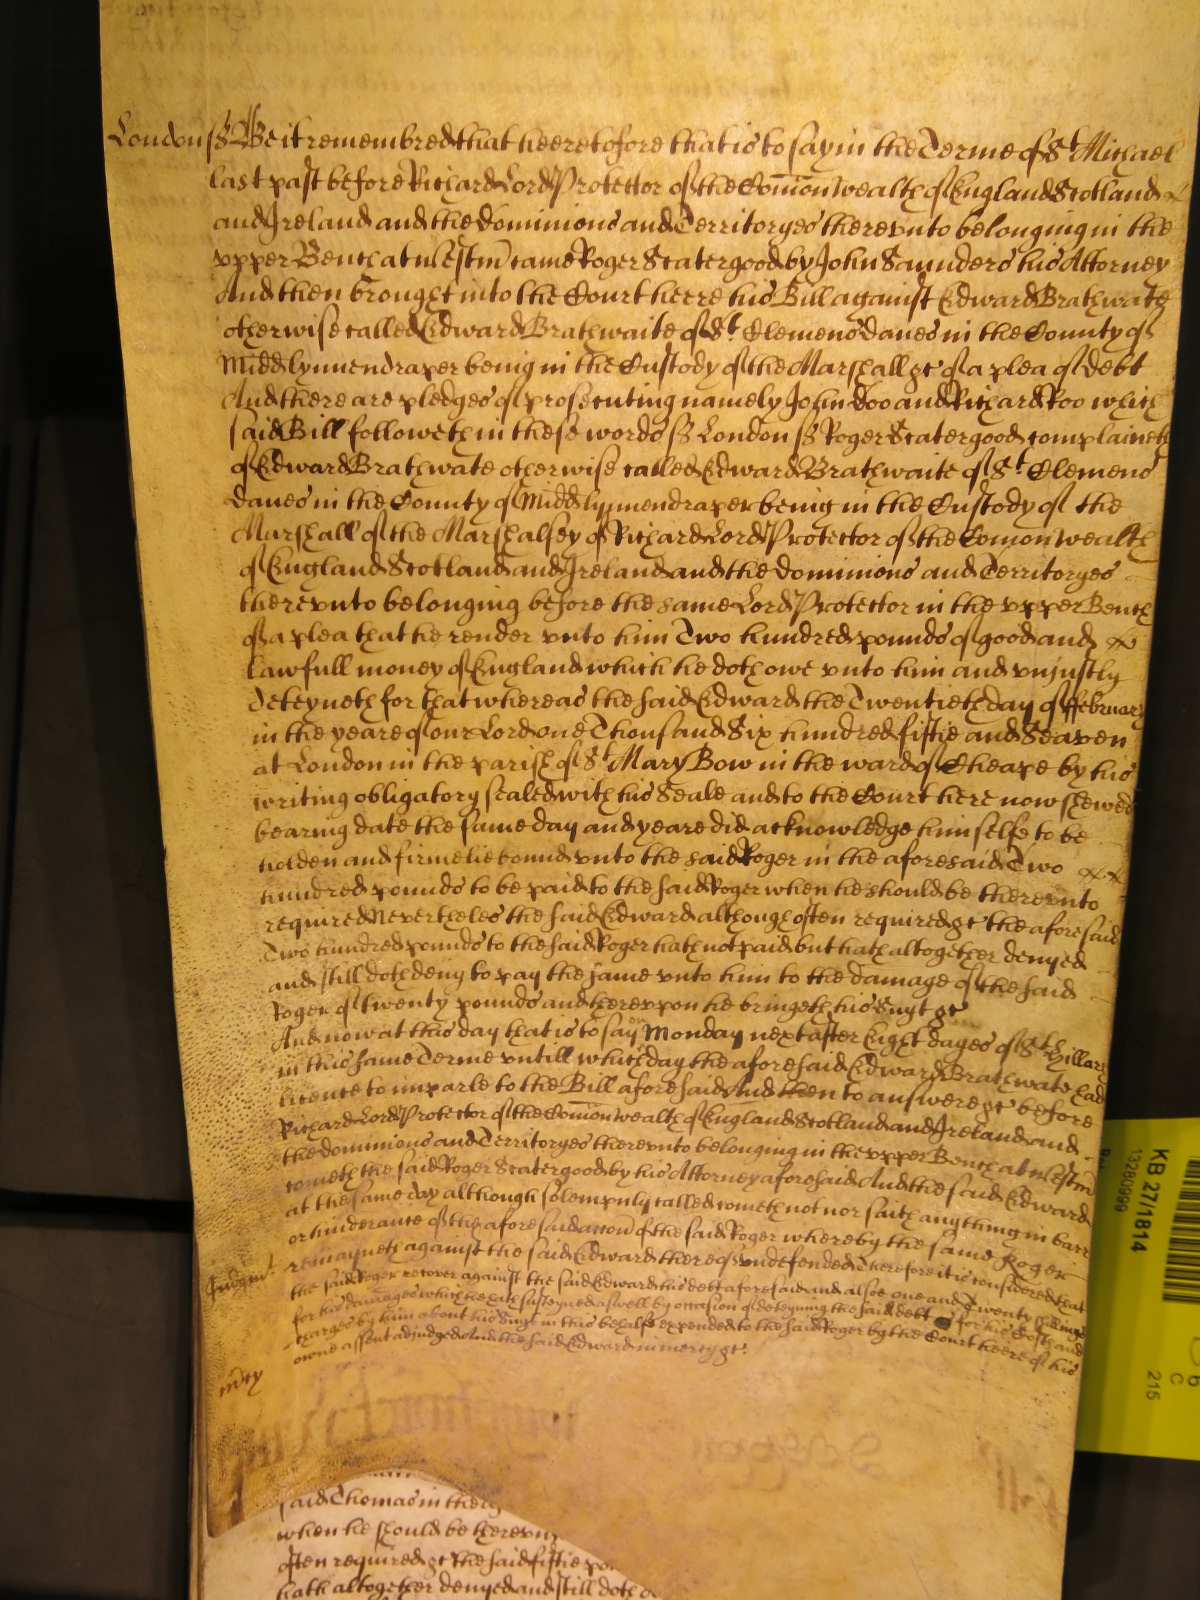 London ss Be it remembred that heeretofore that is to say in the Terme of St Michael
last past before Richard Lord Protector of the Comonwealth of England Scotland
and Ireland and the dominions and Territoryes therevnto belonging in the
vpper Bench at Westm came Roger Scatergood by John Saunders his Attorney
And then brought into the Court heere his Bill against Edward Brathwate
otherwise called Edward Brathwaite of St Clemens danes in the County of
Midd lynnendraper being in the Custody of the Marshall &c of a plea of debt
And there are pledges of prosecuting namely John Doo and Richard Roo which
said Bill followeth in these words ss London ss Roger Scatergood complaineth
of Edward Brathwate otherwise called Edward Brathwaite of St Clemens
danes in the County of Midd lynnendraper being in the Custody of the
Marshall of the Marshalsey of Richard Lord Protector of the Comonwealth
of England Scotland and Ireland and the dominions and Territoryes
therevnto belonging before the same Lord Protector in the vpper Bench
of a plea that he render vnto him Two hundred pounds of good and
lawfull money of England which he doth owe vnto him and vnjustly
deteyneth for that whereas the said Edward the Twentieth day of ffebruary
in the yeare of our Lord one Thousand Six hundred fiftie and Seaven
at London in the parish of St Mary Bow in the ward of Cheape by his
writing obligatory sealed with his Seale and to the Court here now shewed
bearing date the same day and yeare did acknowledge himselfe to be
holden and firmelie bound vnto the said Roger in the aforesaid Two
hundred pounds to be paid to the said Roger when he should be therevnto
required Neverthelës the said Edward although often required &c the aforesaid
Two hundred pounds to the said Roger hath not paid but hath altogether denyed
and still doth deny to pay the same vnto him to the damage of the said
Roger of twenty pounds and therevpon he bringeth his Suyt &c
And now at this day that is to say Monday next after Eight dayes of St Hillary
in this same Terme vntill which day the aforesaid Edward Brathwate had
licence to imparle to the Bill aforesaid And then to answere &c before
Richard Lord Protector of the Comonwealth of England Scotland and Ireland and
the dominions and Territoryes therevnto belonging in the vpper Bench at Westm
cometh the said Roger Scatergood by his Attorney aforesaid And the said Edward
at the same day although solempnly called cometh not nor saith any thing in barr
or hinderance of the aforesaid accon of the said Roger whereby the same Roger
remayneth against the said Edward thereof vndefended Therefore it is considered that
Judgmt
the said Roger recover against the said Edward his debt aforesaid and alsoe one and Twenty shillings
for his damages which he hath susteyned aswell by occasion of deteyning the said debt as for his Costs and
charges by him about his Suyt in this behalfe expended to the said Roger by the Court heere of his
owne assent adjudged And the said Edward in mercy &c
mcy
said Thomas in the
when he should be therevn
often required &c the said fiftie po
hath altogether denyed and still doth
KB 27/1814
13280999
C
215